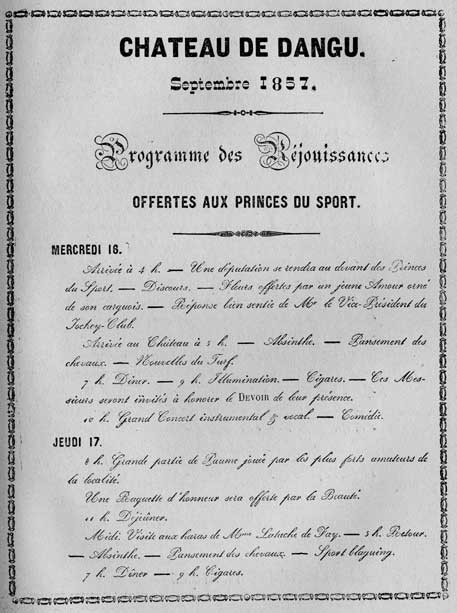 CHATEAU DE DANGU.
Septembre 1857.
Programme des Réjouissances
OFFERTES AUX PRINCES DU SPORT.
MERCREDI 16.
Arrivée à 4 h. — Une députation se rendra au devant des Princes
du Sport. — Discours. — Fleurs offertes par un jeune Amour orné
de son carquois. — Réponse bien sentie de Mr le Vice-Président du
Jockey-Club.
Arrivée au Château à 5 h. — Absinthe. — Pansement des
chevaux. — Nouvelles du Turf.
7 h. Dîner. — 9 h. Illumination. — Cigares. — Ces Mes-
sieurs seront invités à honorer le DEVOIR de leur présence.
10 h. Grand Concert instrumental & vocal. — Comédie.
JEUDI 17.
8 h. Grande partie de Paume jouée par les plus forts amateurs de
la localité.
Une Baguette d'honneur sera offerte par la Beauté.
11 h. Déjeûner.
Midi. Visite aux haras de Mme Latache de Fay. — 5 h. Retour.
— Absinthe. — Pansement des chevaux. — Sport blaguing.
7 h. Dîner — 9 h. Cigares.